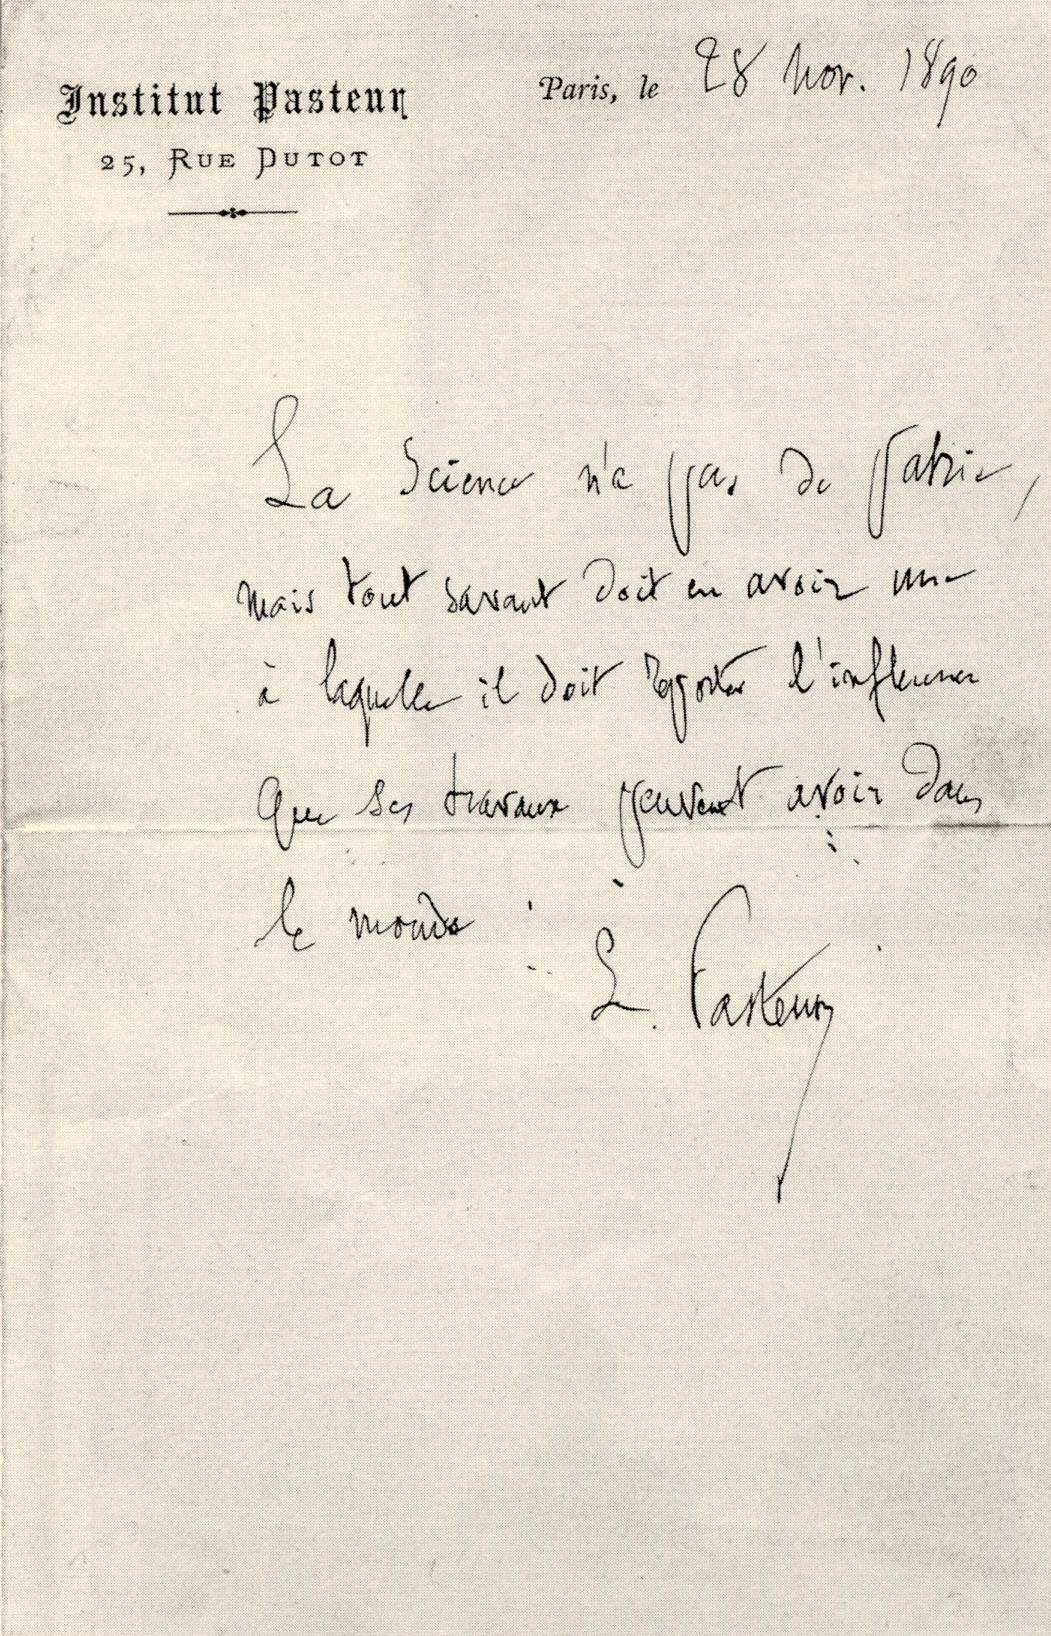 Institut Pasteur
25, RUE DUTOT
Paris, le 28 Nov. 1890
La Science n'a pas de patrie,
mais tout savant doit en avoir une
à laquelle il doit reporter l'influence
que ses travaux peuvent avoir dans
le monde
L. Pasteur